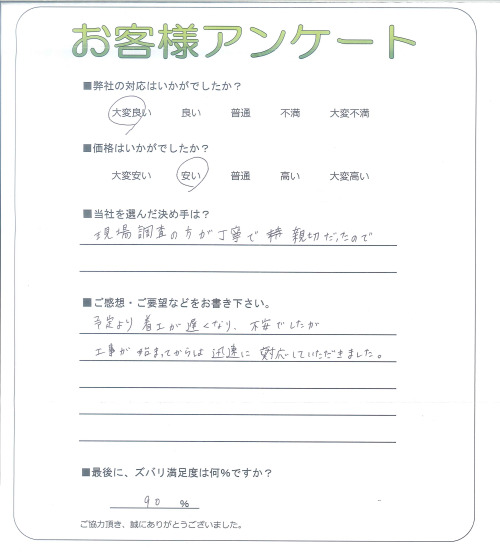 お客様アンケート
■弊社の対応はいかがでしたか？
大変良い 良い 普通 不満 大変不満
■価格はいかがでしたか？
大変安い 安い 普通 高い 大変高い
■当社を選んだ決め手は？
現場調査の方が丁寧で 親切だったので
■ご感想・ご要望などをお書き下さい。
予定より着工が遅くなり、不安でしたが
工事が始まってからは迅速に対応していただきました。
■最後に、ズバリ満足度は何％ですか？
90 ％
ご協力頂き、誠にありがとうございました。